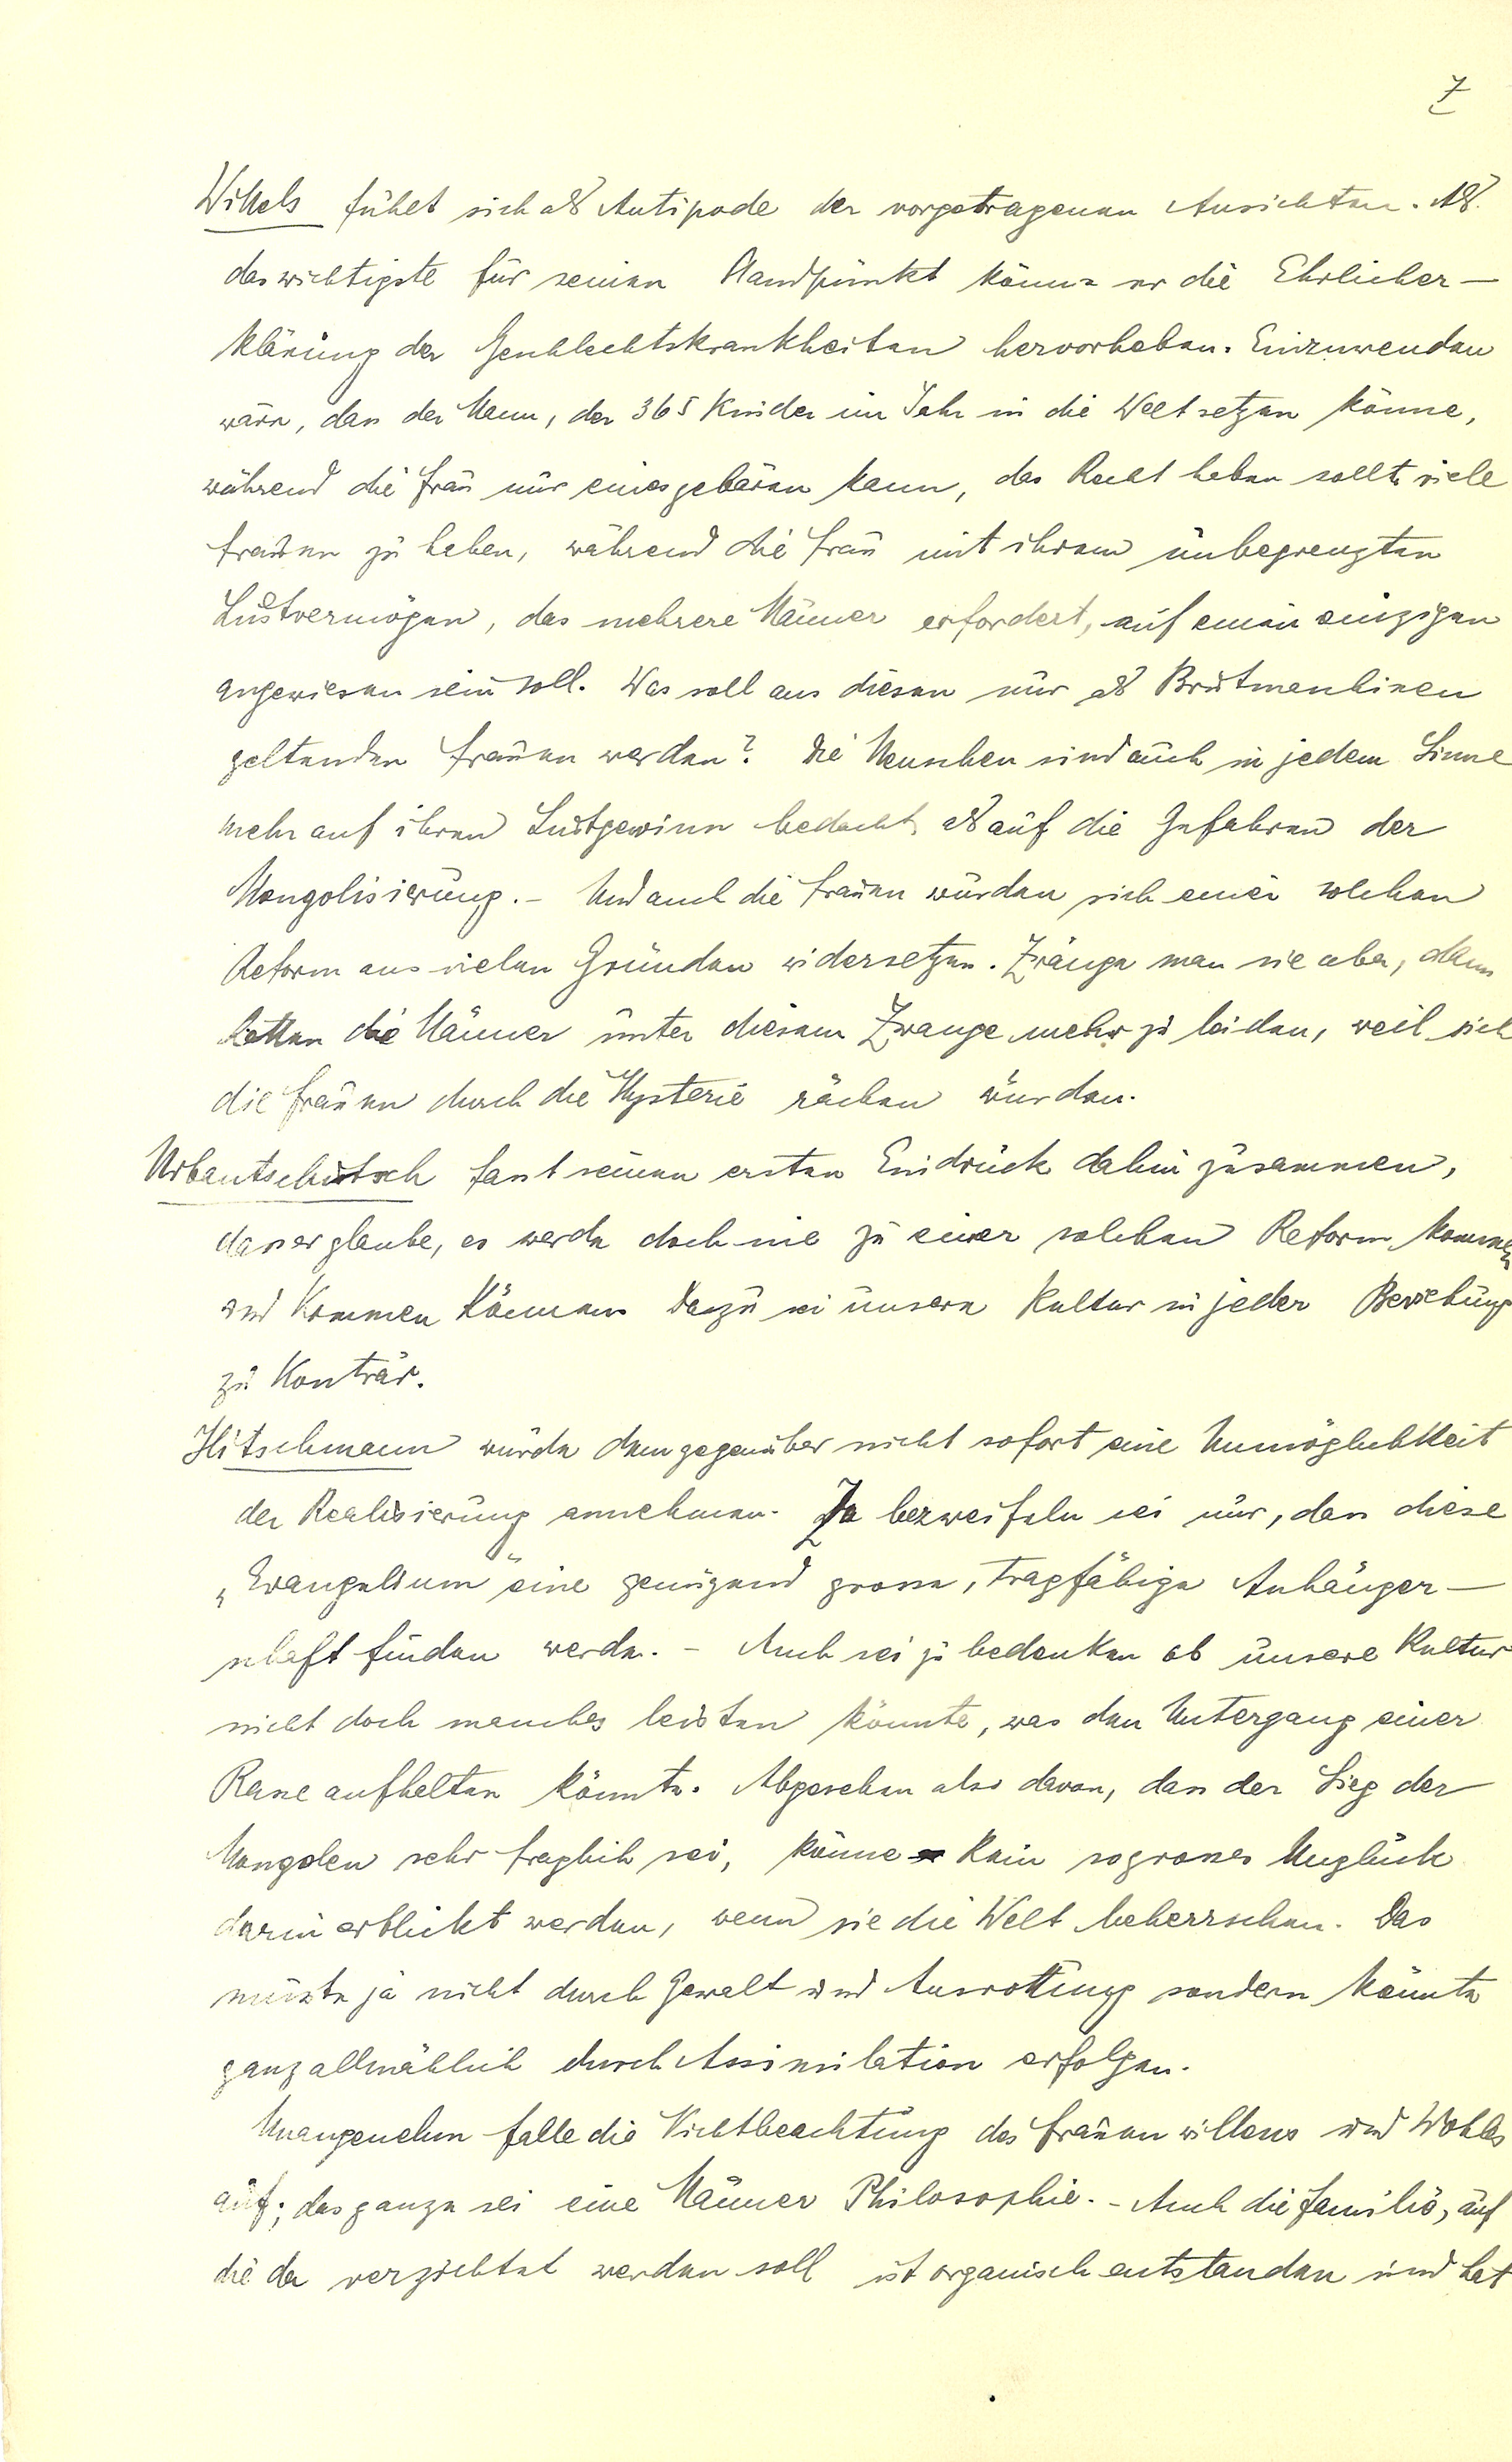 7
Wittels fühlt sich als Antipode der vorgetragenen Ansichten. Als
das wichtigste für seinen Standpunkt könne er die Ehrlicher-
klärung der Geschlechtskrankheiten hervorheben. Einzuwenden
wäre, dass der Mann, der 365 Kinder im Jahr in die Welt setzen könne,
während die Frau nur eines gebären kann, das Recht haben sollte viele
Frauen zu haben, während die Frau mit ihrem unbegrenzten
Lustvermögen, das mehrere Männer erfordert, auf einen einzigen
angewiesen sein soll. Was soll aus diesen nur als Brutmaschinen
geltenden Frauen werden? Die Menschen sind auch in jedem Sinne
mehr auf ihren Lustgewinn bedacht als auf die Gefahren der
Mongolisierung. – Und auch die Frauen würden sich einer solchen
Reform aus vielen Gründen widersetzen. Zwänge man sie aber, dann
hätten die Männer unter diesem Zwange mehr zu leiden, weil sich
die Frauen durch die Hysterie rächen würden.
Urbantschitsch fasst seinen ersten Eindruck dahin zusammen,
dass er glaube, es werde doch nie zu einer solchen Reform kommen
und kommen können. Dazu sei unsere Kultur in jeder Beziehung
zu konträr.
Hitschmann würde dem gegenüber nicht sofort eine Unmöglichkeit
der Realisierung annehmen. Zu bezweifeln sei nur, dass diese
„Evangelium" eine genügend grosse, tragfähige Anhänger-
schaft finden werde. – Auch sei zu bedenken ob unsere Kultur
nicht doch manches leisten könnte, was den Untergang einer
Rasse aufhalten könnte. Abgesehen also davon, dass der Sieg der
Mongolen sehr fraglich sei, könne kein so grosses Unglück
darin erblickt werden, wenn sie die Welt beherrschen. Das
müsste ja nicht durch Gewalt und Ausrottung sondern könnte
ganz allmählich durch Assimilation erfolgen.
Unangenehm falle die Nichtbeachtung des Frauenwillens und Wohles
auf; das ganze sei eine Männer Philosophie. – Auch die Familie, auf
die da verzichtet werden soll ist organisch entstanden und hat